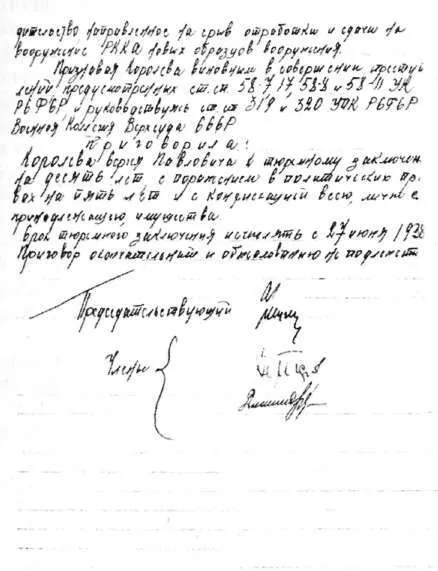 дительство направленное на срыв отработки и сдачи на
вооружение РККА новых образцов вооружения.
Признавая Королева виновным в совершении преступ
лений, предусмотренных ст.ст. 58-7, 17, 58-8 и 58-11 УК
РСФСР, и руководствуясь ст.ст. 319 и 320 УПК РСФСР
Военная Коллегия Верхсуда СССР
приговорила:
Королева Сергея Павловича к тюрмному заключен
на десять лет с поражением в политических пр
вах на пять лет и с конфискацией всего, личн е
принадлежащего имущества.
Срок тюрмного заключения исчислять с 27 июня 1938
Приговор окончательный и обжалованию не подлежит
Председательствующий
Члены